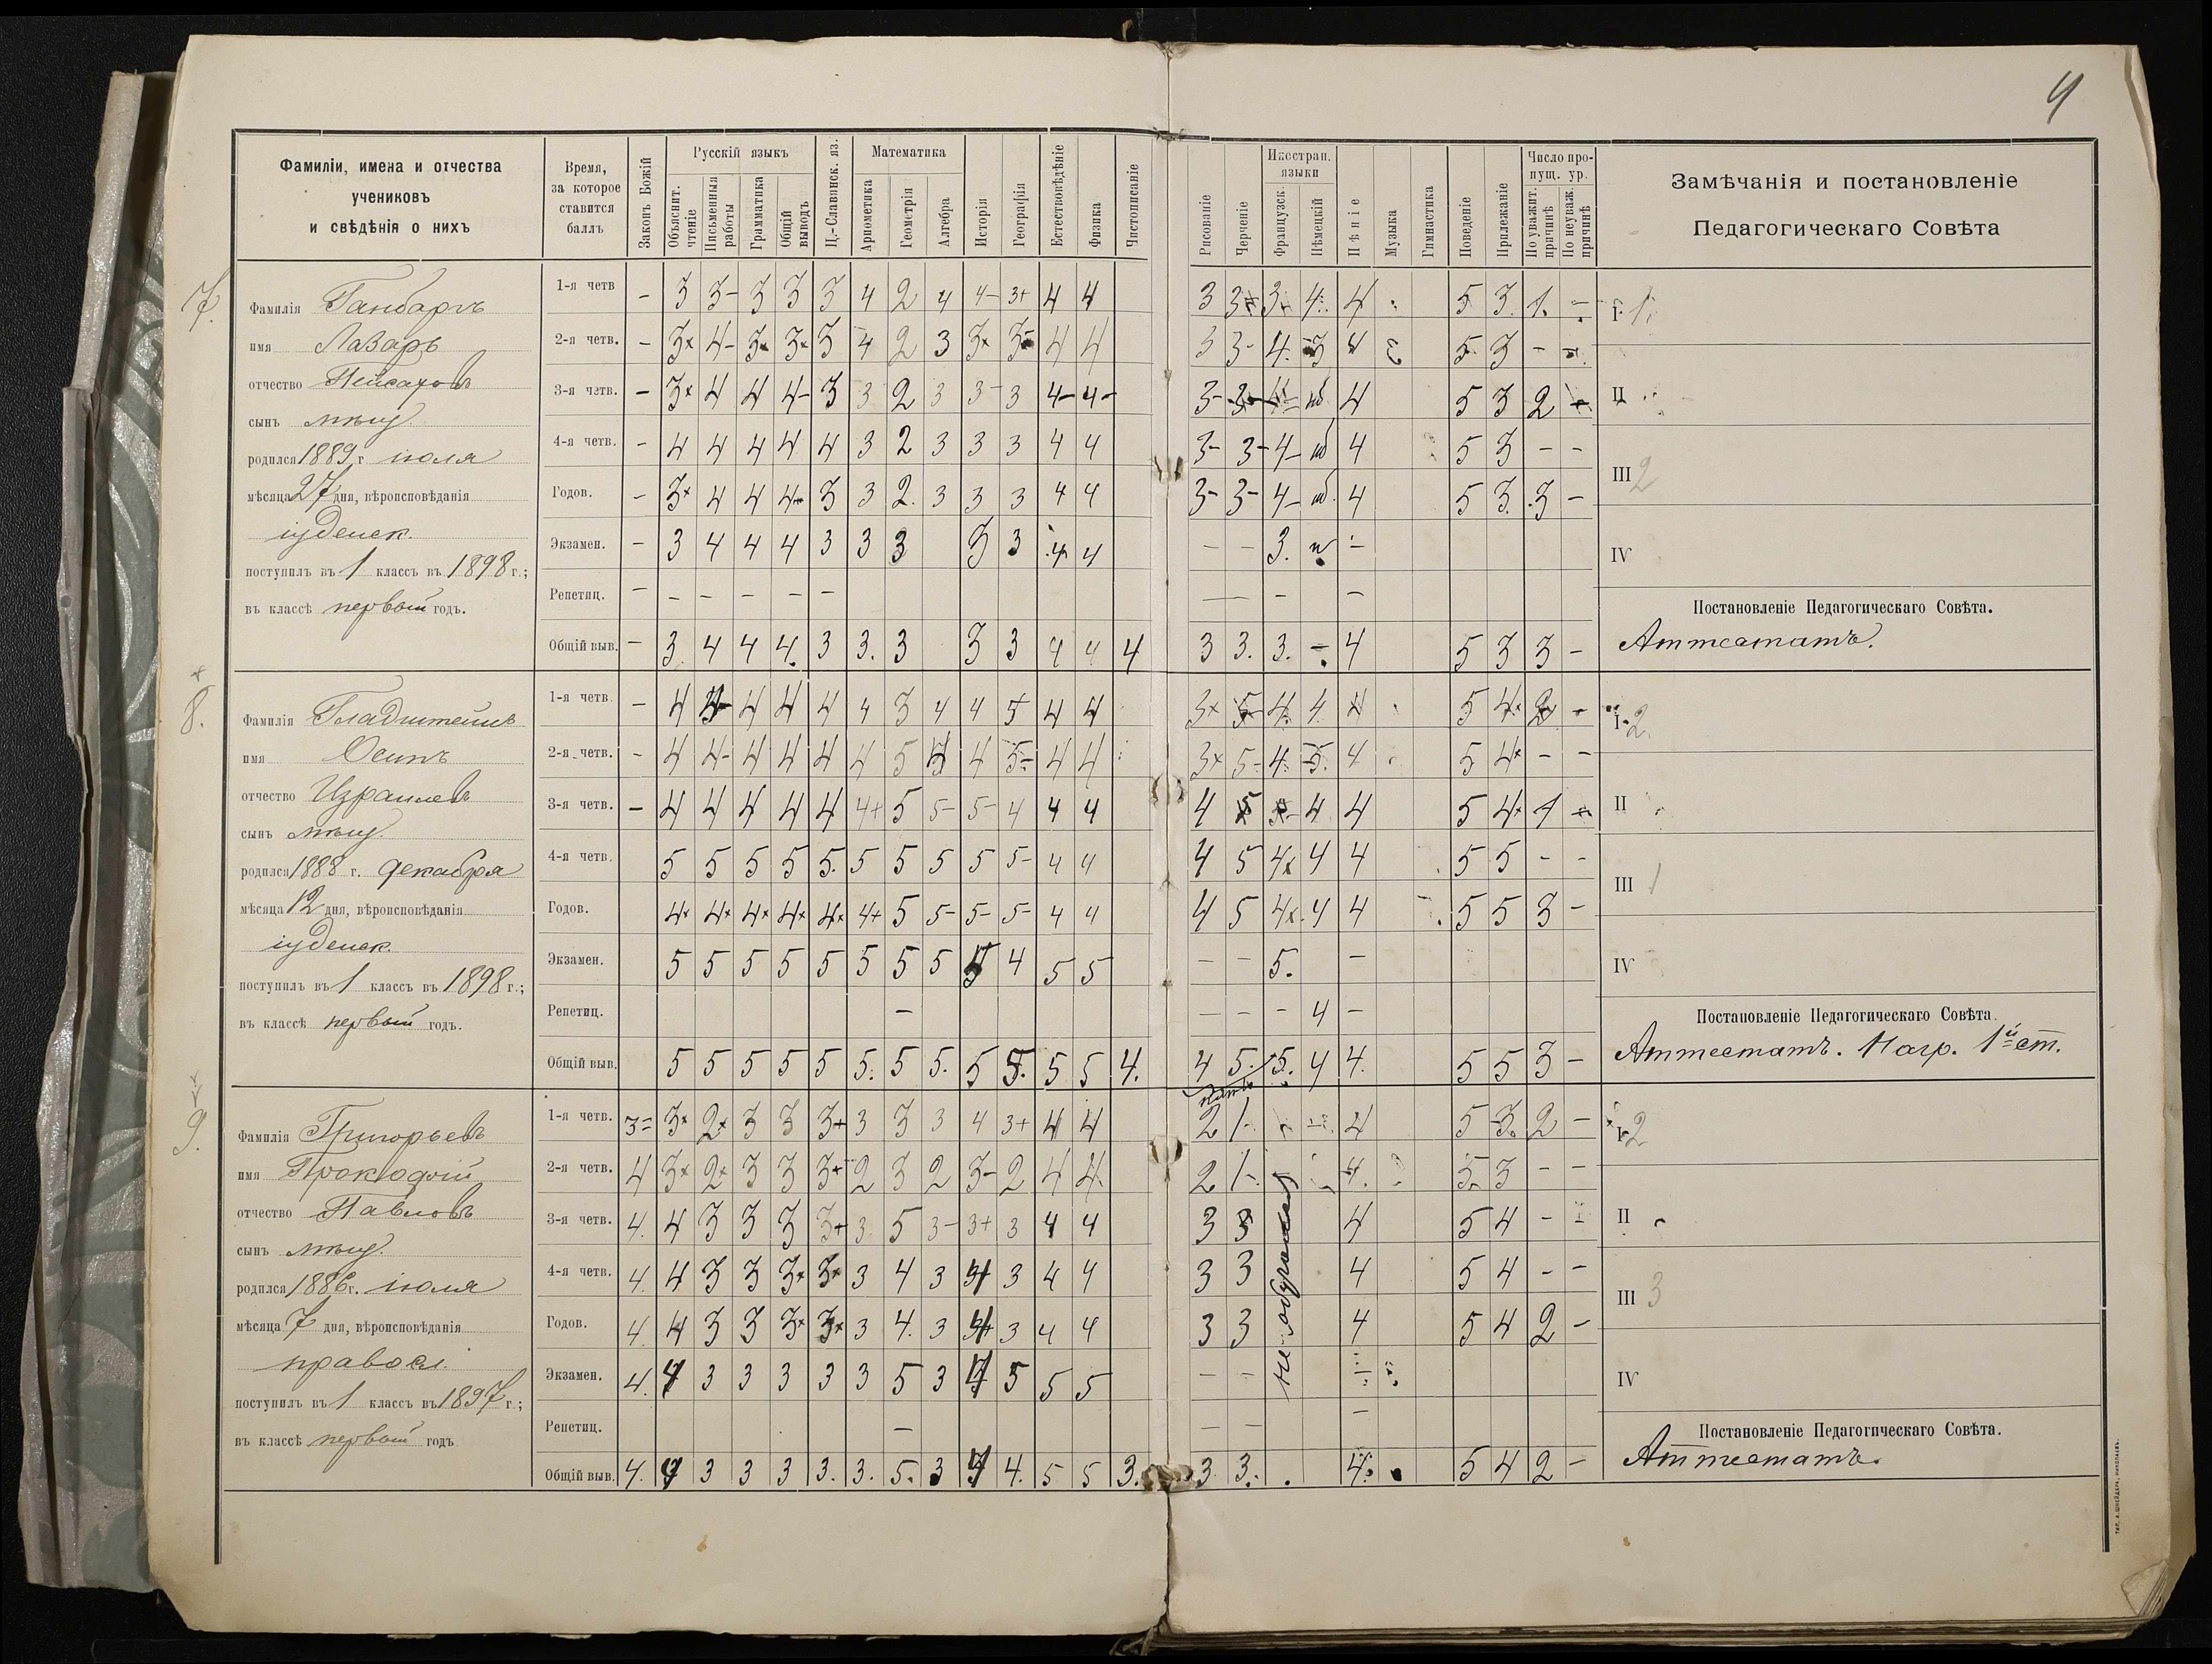 4
Фамиліи, имена и отчества
учениковъ
и свѣдѣнія о нихъ
Время,
за которое
ставится
баллъ
Законъ Божій
Русскій языкъ
Объяснит. чтеніе
Письменныя работы
Грамматика
Общій выводъ
Ц.-Славянск. яз.
Математика
Ариѳметика
Геометрія
Алгебра
Исторія
Географія
Естествовѣдѣніе
Физика
Чистописаніе
Рисованіе
Черченіе
Иностран. языки
Французск.
Нѣмецкій
Пѣніе
Музыка
Гимнастика
Поведеніе
Прилежаніе
Число пропущ. ур.
По уважит. причинѣ
По неуваж. причинѣ
Замѣчанія и постановленіе
Педагогическаго Совѣта
7.
Фамилія Ганбаргъ
имя Лазарь
отчество Нейсаховъ
сынъ мѣщ.
родился 1889 г. іюля
мѣсяца 27 дня, вѣроисповѣданія
іудейск.
поступилъ въ 1 классъ въ 1898 г.;
въ классѣ первый годъ.
1-я четв. – 3 3- 3 3 3 4 2 4 4- 3+ 4 4
2-я четв. – 3+ 4- 3+ 3+ 3 4 2 3 3+ 3- 4 4
3-я четв. – 3+ 4 4 4- 3 3 2 3 3- 3 4- 4-
4-я четв. – 4 4 4 4 4 3 2 3 3 3 4 4 3- 3- 4- 4 5 3 – –
Годов. – 3+ 4 4 4- 3 3 2. 3 3 3 4 4 3- 3- 4- 4 5 3. 3 –
Экзамен. – 3 4 4 4 3 3 3 3 3 4 4 – – 3. –
Репетиц. – – – – – –
Общій выв. – 3. 4 4 4. 3 3. 3 3 3 4 4 4 3 3. 3. – 4 5 3 3 –
I 1.
II
III 2
IV
Постановленіе Педагогическаго Совѣта.
Аттестатъ.
8.
Фамилія Гладштейнъ
имя Осипъ
отчество Израилевъ
сынъ мѣщ.
родился 1888 г. декабря
мѣсяца 12 дня, вѣроисповѣданія
іудейск.
поступилъ въ 1 классъ въ 1898 г.;
въ классѣ первый годъ.
1-я четв. – 4 4- 4 4 4 4 3 4 4 5 4 4
2-я четв. – 4 4- 4 4 4 4 5 4 4 5- 4 4
3-я четв. – 4 4 4 4 4 4+ 5 5- 5- 4 4 4
4-я четв. 5 5 5 5 5. 5 5 5 5 5- 4 4 4 5 4+ 4 4 5 5 – –
Годов. 4+ 4+ 4+ 4+ 4+ 4+ 5 5- 5- 5- 4 4 4 5 4+ 4 4 5 5 3 –
Экзамен. 5 5 5 5 5 5 5 5 5 4 5 5 – – 5. –
Репетиц. – – – – 4 –
Общій выв. 5 5 5 5 5 5. 5 5. 5 5. 5 5 4. 4 5. 5. 4 4. 5 5 3 –
пять
I 2.
II
III 1
IV
Постановленіе Педагогическаго Совѣта.
Аттестатъ. Нагр. 1й ст.
9.
Фамилія Григорьевъ
имя Прокофій
отчество Павловъ
сынъ мѣщ.
родился 1886 г. іюля
мѣсяца 7 дня, вѣроисповѣданія
правосл.
поступилъ въ 1 классъ въ 1897 г.;
въ классѣ первый годъ
1-я четв. 3= 3+ 2+ 3 3 3+ 3 3 3 4 3+ 4 4 2 1- 4 5 3. 2 –
2-я четв. 4 3+ 2+ 3 3 3+ 2 3 2 3- 2 4 4 2 1- 4. 5 3 – –
3-я четв. 4. 4 3 3 3 3+ 3 5 3- 3+ 3 4 4 3 3 4 5 4 –
4-я четв. 4. 4 3 3 3+ 3+ 3 4 3 4 3 4 4 3 3 4 5 4 – –
Годов. 4. 4 3 3 3+ 3+ 3 4. 3 4 3 4 4 3 3 4 5 4 2 –
Экзамен. 4. 4 3 3 3 3 3 5 3 4 5 5 5 – – –
Репетиц. – – – –
Общій выв. 4. 4 3 3 3 3. 3. 5. 3 4 4. 5 5 3. 3 3. 4. 5 4 2 –
не обучался
I 2
II
III 3
IV
Постановленіе Педагогическаго Совѣта.
Аттестатъ.